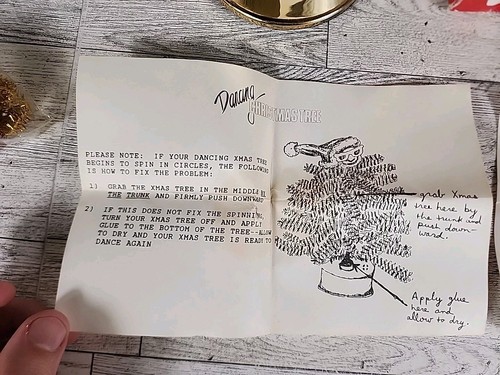 Dancing
CHRISTMAS TREE
PLEASE NOTE: IF YOUR DANCING XMAS TREE
BEGINS TO SPIN IN CIRCLES, THE FOLLOWING
IS HOW TO FIX THE PROBLEM:
1) GRAB THE XMAS TREE IN THE MIDDLE BY
THE TRUNK AND FIRMLY PUSH DOWNWARD
2) IF THIS DOES NOT FIX THE SPINNING,
TURN YOUR XMAS TREE OFF AND APPLY
GLUE TO THE BOTTOM OF THE TREE--ALLOW
TO DRY AND YOUR XMAS TREE IS READY TO
DANCE AGAIN
grab Xmas
tree here by
the trunk and
push down-
ward.
Apply glue
here and
allow to dry.